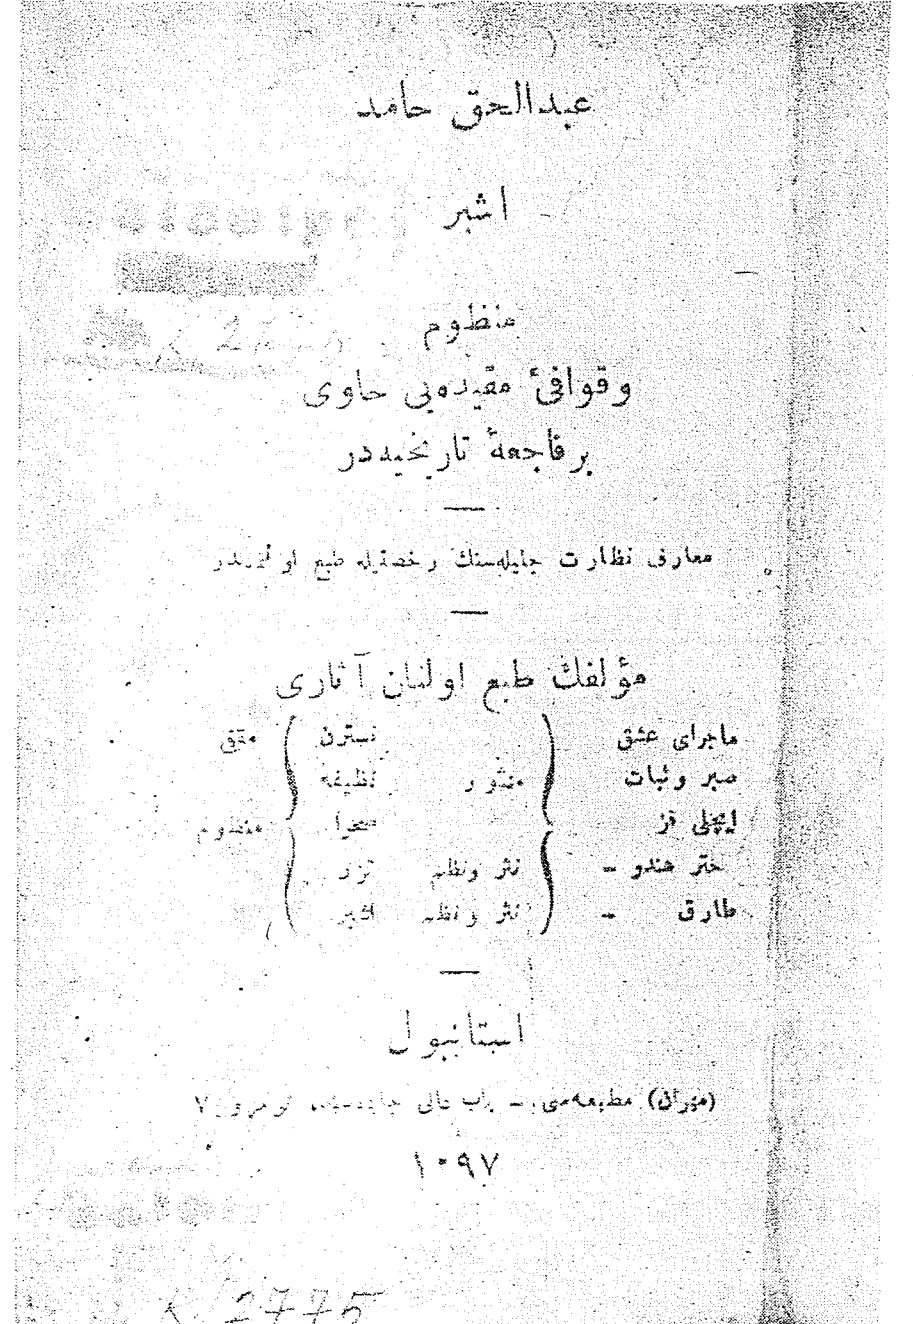 عبدالحق حامد
اشبر
منظوم
وقوافئ مقیده‌یی حاوی
بر فاجعهٔ تاریخیه‌در
معارف نظارت جلیله‌سنك رخصتیله طبع اولنمشدر
مؤلفك طبع اولنان آثاری
ماجرای عشق
صبر وثبات
ایچلی قز
منثور
دختر هندو –
طارق –
نثر ونظم
نثر ونظم
نسترن مقفی
نظیفه
صحرا
تزر
اشبر
منظوم
استانبول
(مهران) مطبعه‌سی – باب عالی جاده‌سنده نومرو ٧
١٠٩٧
K. 2775